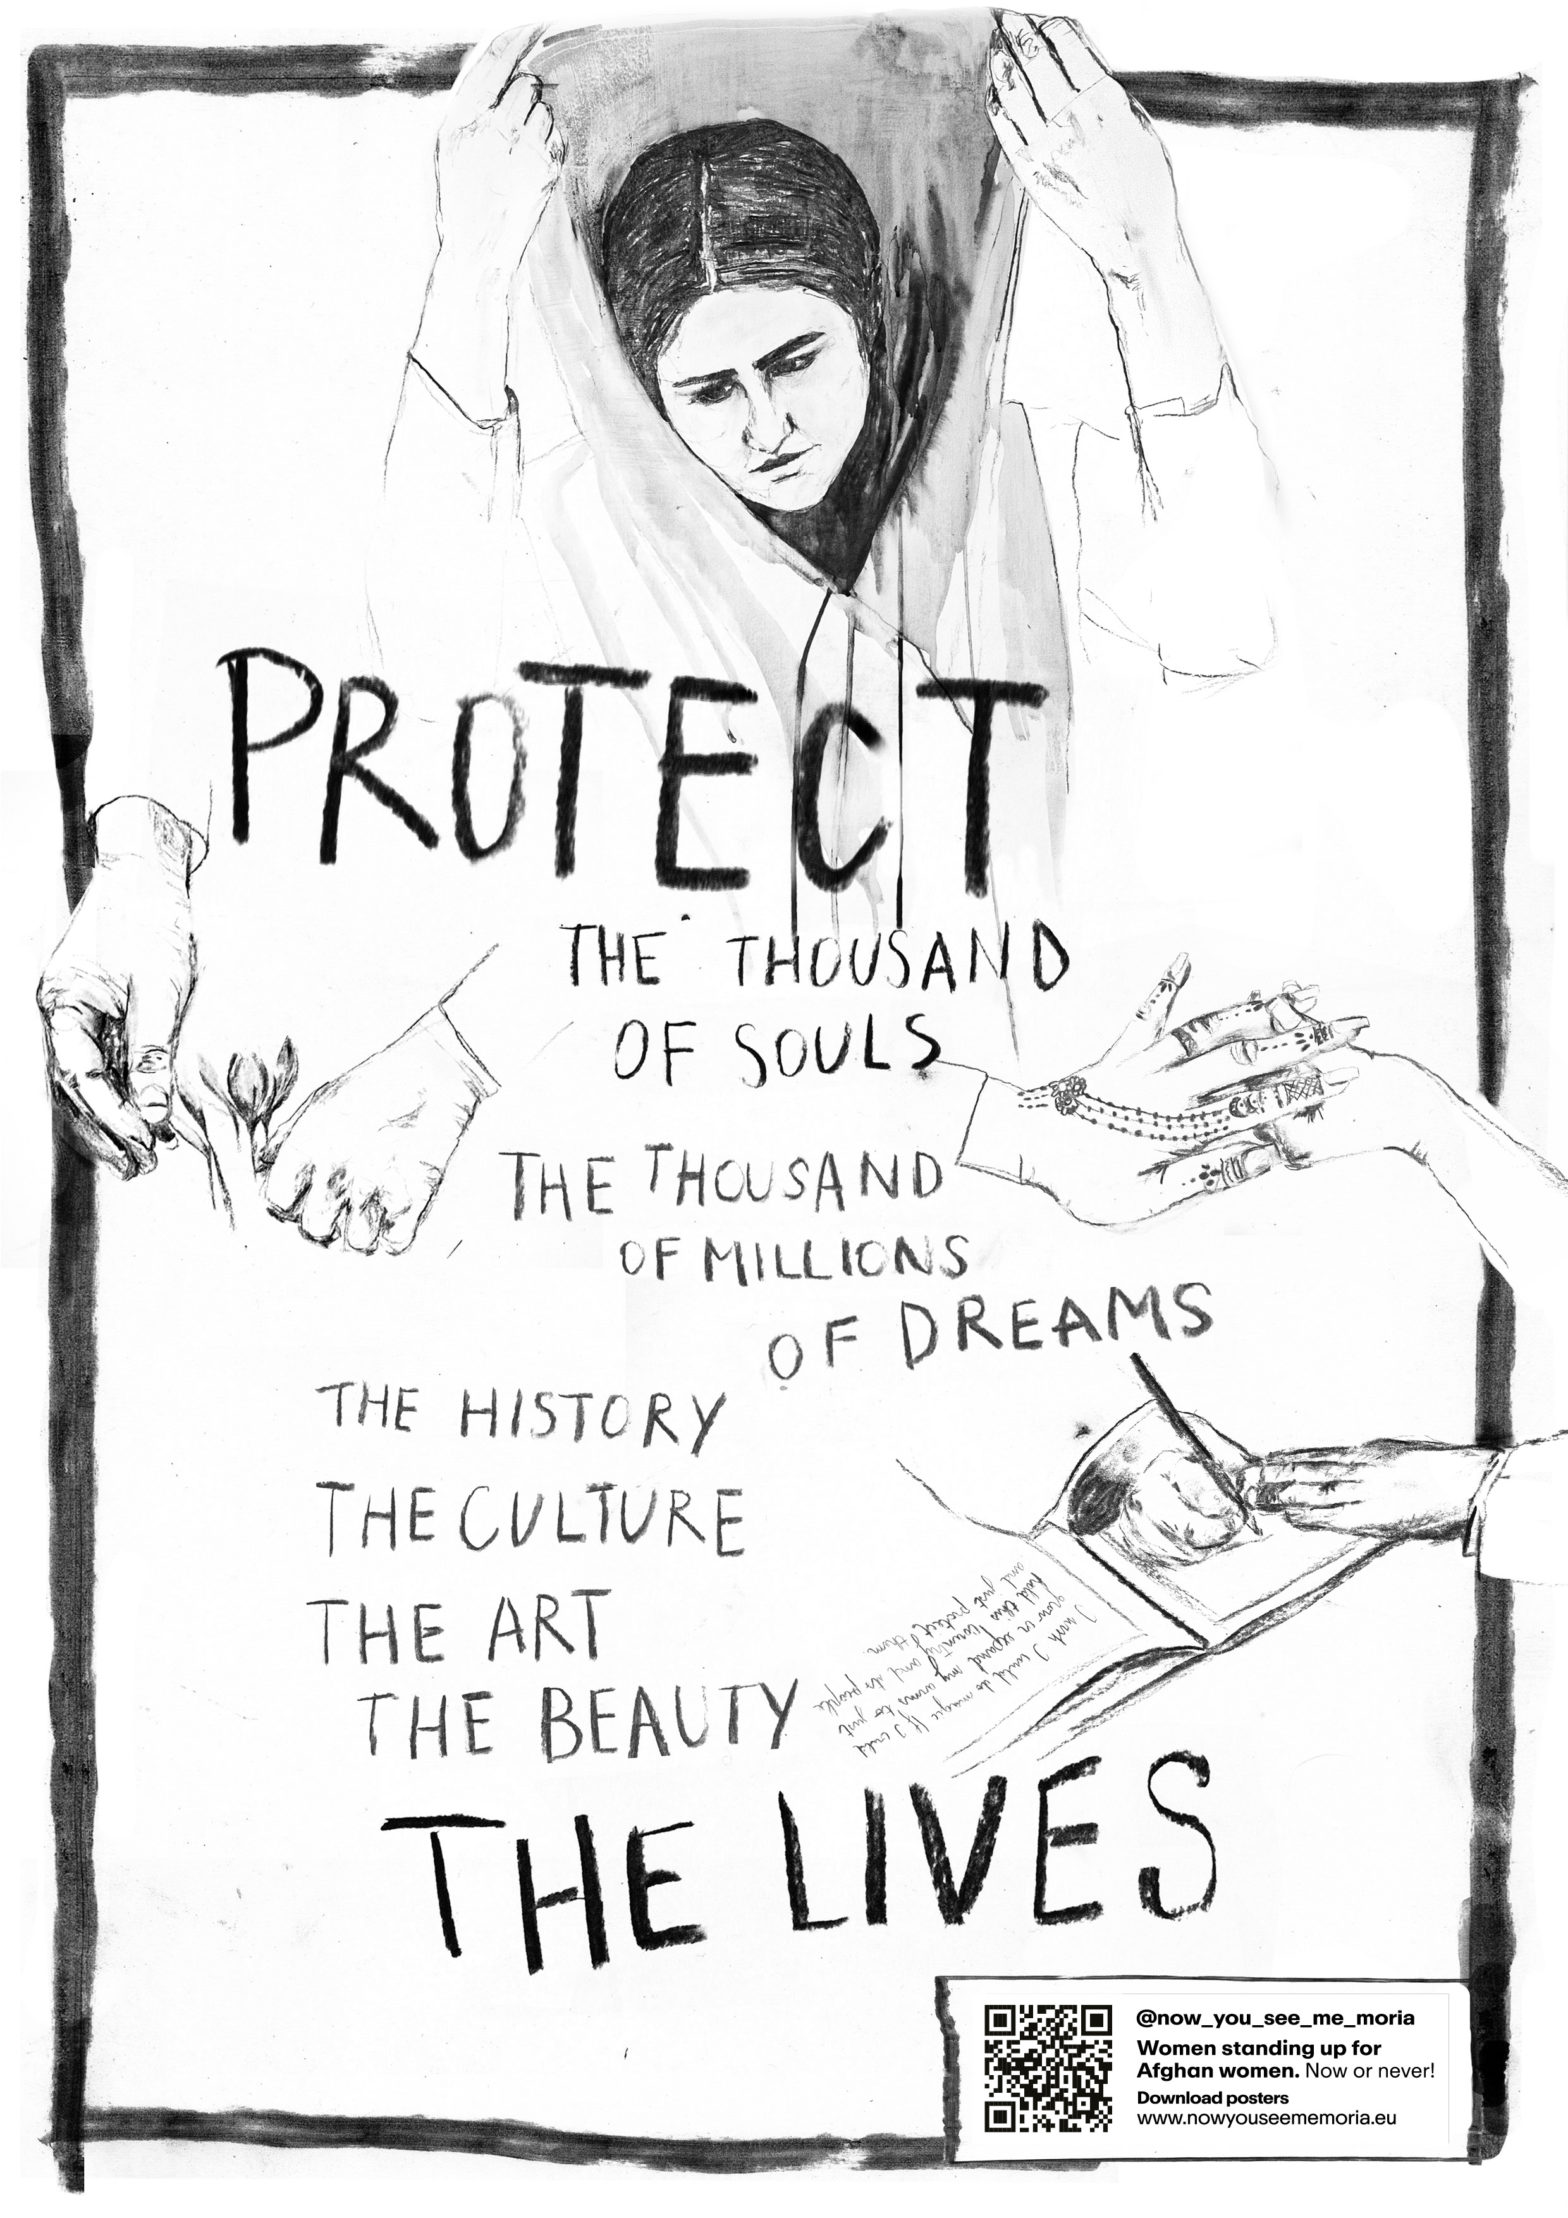 PROTECT
THE THOUSAND
OF SOULS
THE THOUSAND
OF MILLIONS
OF DREAMS
THE HISTORY
THE CULTURE
THE ART
THE BEAUTY
I wish I could do magic If I could
grow or expand my arms to just
hold this country and its people
and just protect them
THE LIVES
@now_you_see_me_moria
Women standing up for
Afghan women. Now or never!
Download posters
www.nowyouseememoria.eu